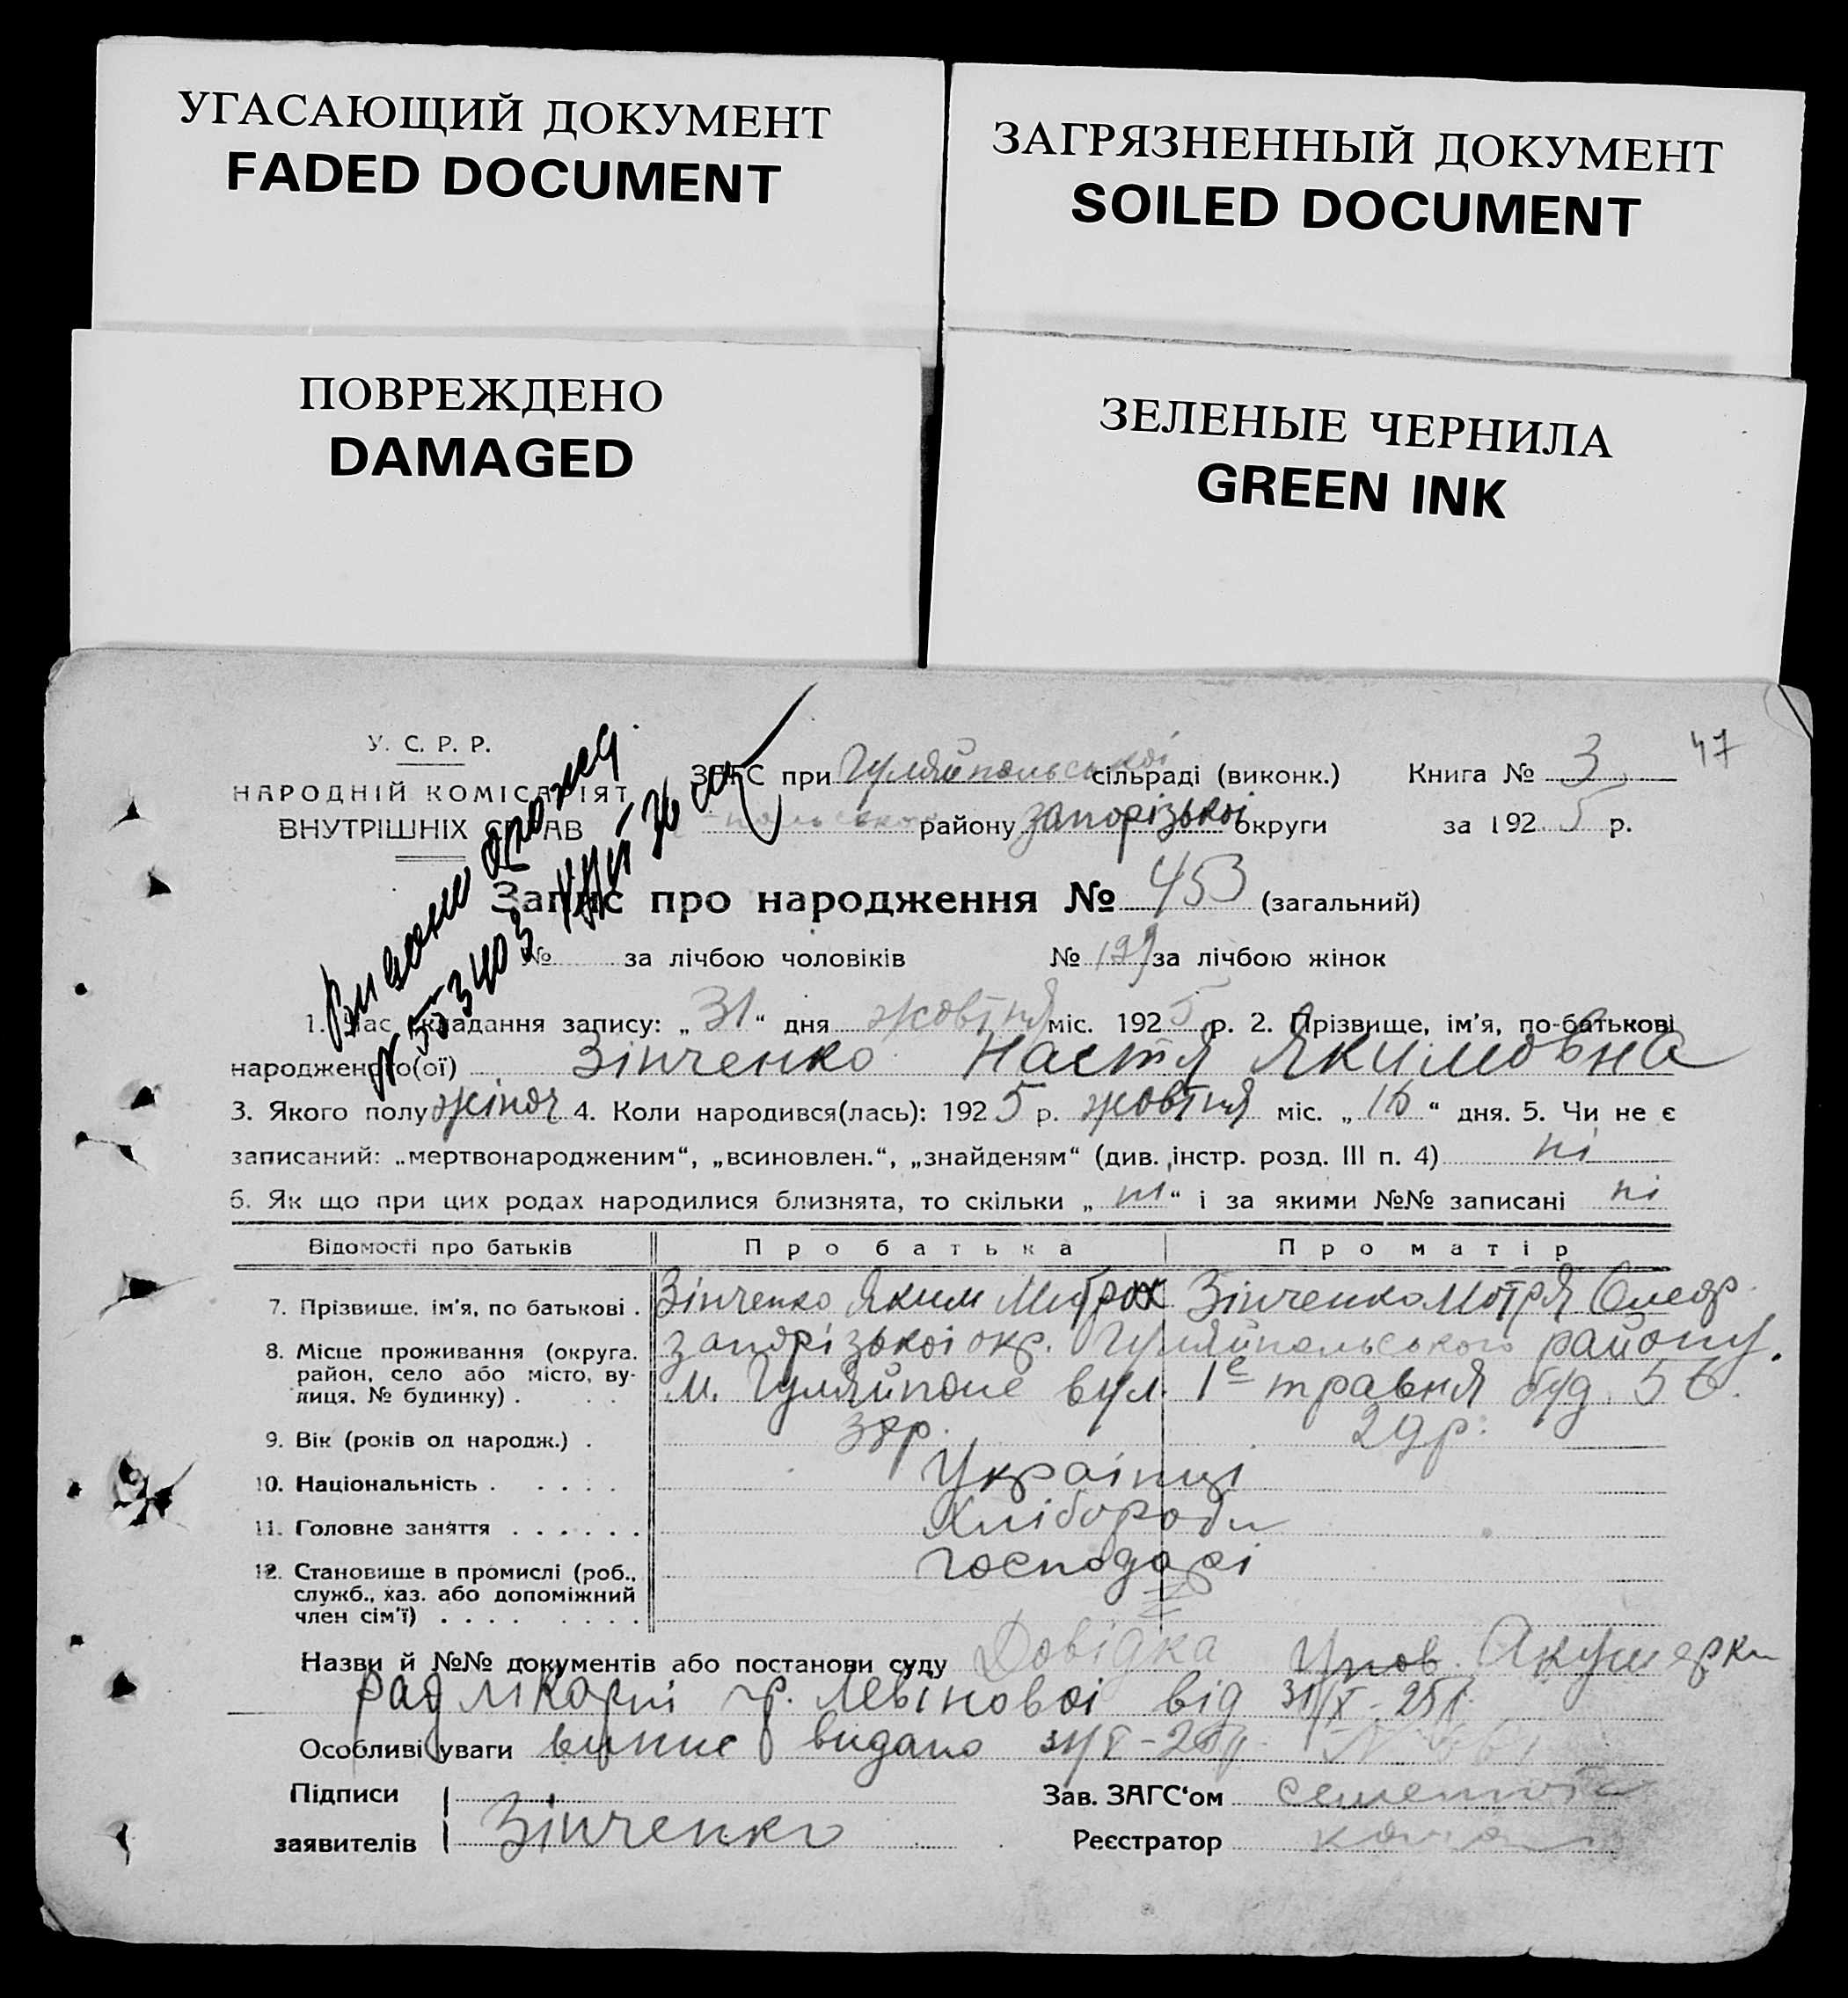 УГАСАЮЩИЙ ДОКУМЕНТ
FADED DOCUMENT
ЗАГРЯЗНЕННЫЙ ДОКУМЕНТ
SOILED DOCUMENT
ПОВРЕЖДЕНО
DAMAGED
ЗЕЛЕНЫЕ ЧЕРНИЛА
GREEN INK
47
У. С. Р. Р.
НАРОДНІЙ КОМІСАРІЯТ
ВНУТРІШНІХ СПРАВ
ЗАГС при Гуляйпольської сільраді (виконк.) Книга № 3
-польського району запорізької округи за 1925 р.
Запис про народження № 453 (загальний)
№ за лічбою чоловіків № за лічбою жінок
1. Час складання запису: „31“ дня жовтня міс. 1925 р. 2. Прізвище, ім'я, по-батькові
народженого(ої) Зінченко Настя Якимовна
3. Якого полу жіноч 4. Коли народився(лась): 1925 р. жовтня міс. „16“ дня. 5. Чи не є
записаний: „мертвонародженим“, „всиновлен.“, „знайденям“ (див. інстр. розд. III п. 4) ні
6. Як що при цих родах народилися близнята, то скільки „ні“ і за якими №№ записані ні
Відомості про батьків Про батька Про матір
7. Прізвище, ім'я, по батькові . Зінченко Яким Митроx Зінченко Мотря
8. Місце проживання (округа. запорізької окр. Гуляйпольського району.
район, село або місто, ву-
лиця, № будинку) . . . м. Гуляйполе вул. 1е травня буд. 56.
9. Вік (років од народж.) . 38р. 29р.
10. Національність . . . . . Українці
11. Головне заняття . . . . . . Хлібороби
12. Становище в промислі (роб., господарі
служб., хаз. або допоміжний
член сім'ї) . . . . . . . .
Назви й №№ документів або постанови суду Довідка Акушерки
рад лікарні гр. Левінової від 31/X-25р.
Особливі уваги випис видано 31/X-25р.
Підписи
заявителів Зінченко
Зав. ЗАГС'ом
Реєстратор